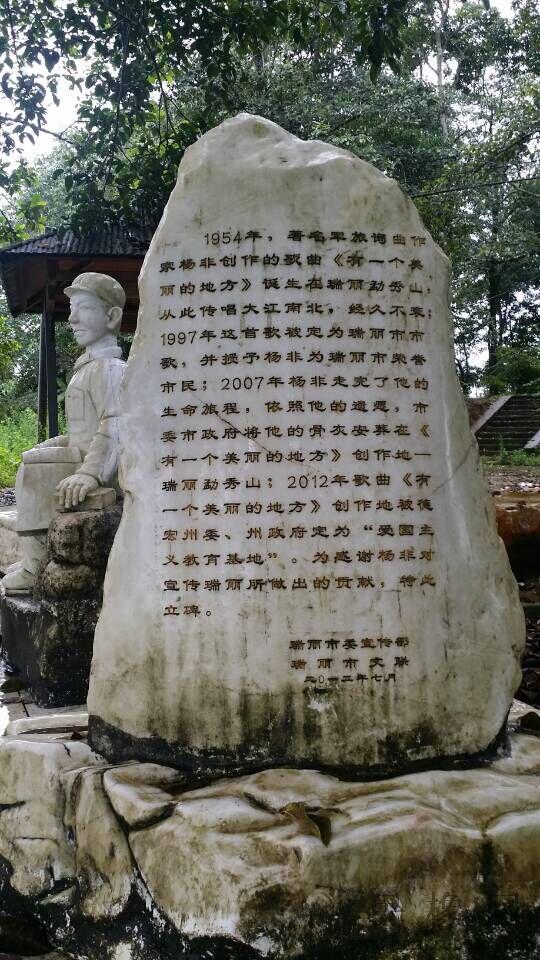 1954年，著名军旅词曲作
家杨非创作的歌曲《有一个美
丽的地方》诞生在瑞丽勐秀山，
从此传唱大江南北，经久不衰；
1997年这首歌被定为瑞丽市市
歌，并授予杨非为瑞丽市荣誉
市民；2007年杨非走完了他的
生命旅程，依照他的遗愿，市
委市政府将他的骨灰安葬在《
有一个美丽的地方》创作地—
瑞丽勐秀山；2012年歌曲《有
一个美丽的地方》创作地被德
宏州委、州政府定为“爱国主
义教育基地”。为感谢杨非对
宣传瑞丽所做出的贡献，特此
立碑。
瑞丽市委宣传部
瑞丽市文联
二〇一二年七月